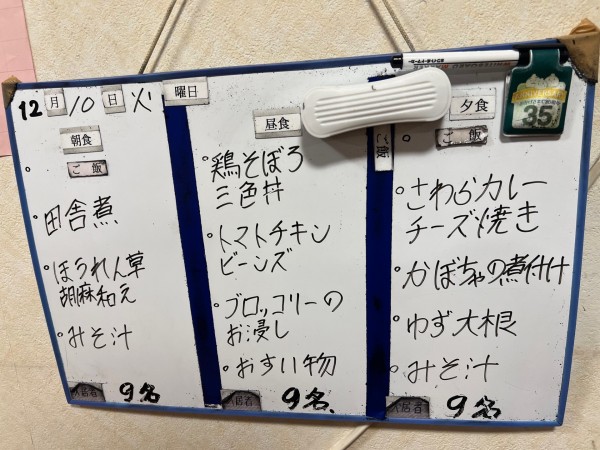 12月10日火曜日
朝食
ご飯
田舎煮
ほうれん草
胡麻和え
みそ汁
入居者 9名
昼食
鶏そぼろ
三色丼
トマトチキン
ビーンズ
ブロッコリーの
お浸し
おすい物
入居者 9名、
夕食
ご飯
さわらカレー
チーズ焼き
かぼちゃの煮付け
ゆず大根
みそ汁
入居者 9名
ご飯
35